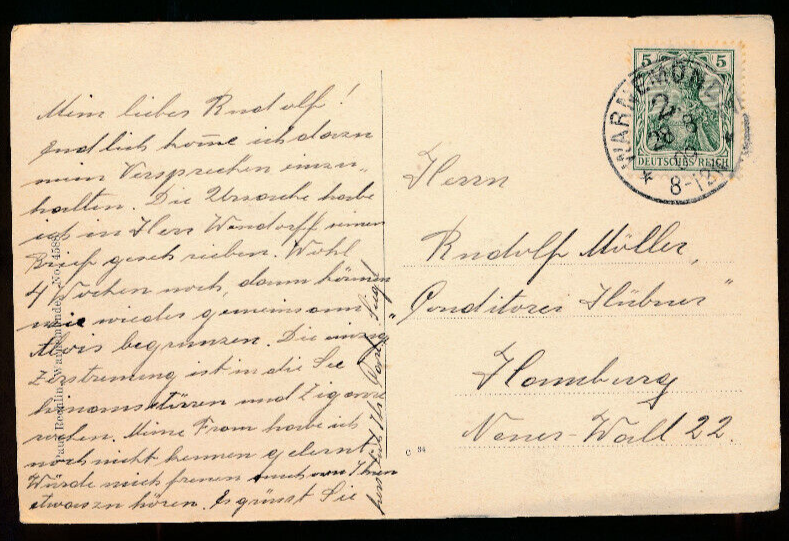 Mein lieber Rudolf!
Endlich kome ich dazu
mein Versprechen einzu-
halten. Die Ursache habe
ich in Herr Wendorff einen
Brief geschrieben. Wohl
4 Wochen noch, dann können
wir wieder gemeinsam
begrunzen. Die einzig
Zerstreuung ist in die See
hinaus stieren und Zigarre
rochen. Meine Frau habe ich
noch nicht kennen gelernt
Würde mich freuen auch von Ihnen
etwas zu hören. Es grüsst Sie
herzlich Ihr
Paul Rechlin, Warnemünde. No. 4588
C 34
5 5
DEUTSCHES REICH
WARNEMÜNDE
8-12
Herrn
Rudolf Möller,
„Conditorei Hübner"
Hamburg
Neuer-Wall 22.